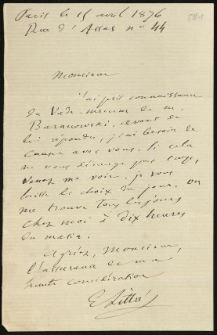 Paris le 15 avril 1876
Rue d'Assas n° 44
Monsieur
J'ai pris connaissance
du Vade-mecum de m.
Baranowski. Avant de
lui répondre, j'ai besoin de
causer avec vous. Si cela
ne vous dérange pas trop,
venez me voir. je vous
laisse le choix du jour. On
me trouve tous les jours
chez moi à dix heures
du matin.
Agréez, Monsieur,
l'assurance de ma
haute considération
E Littré